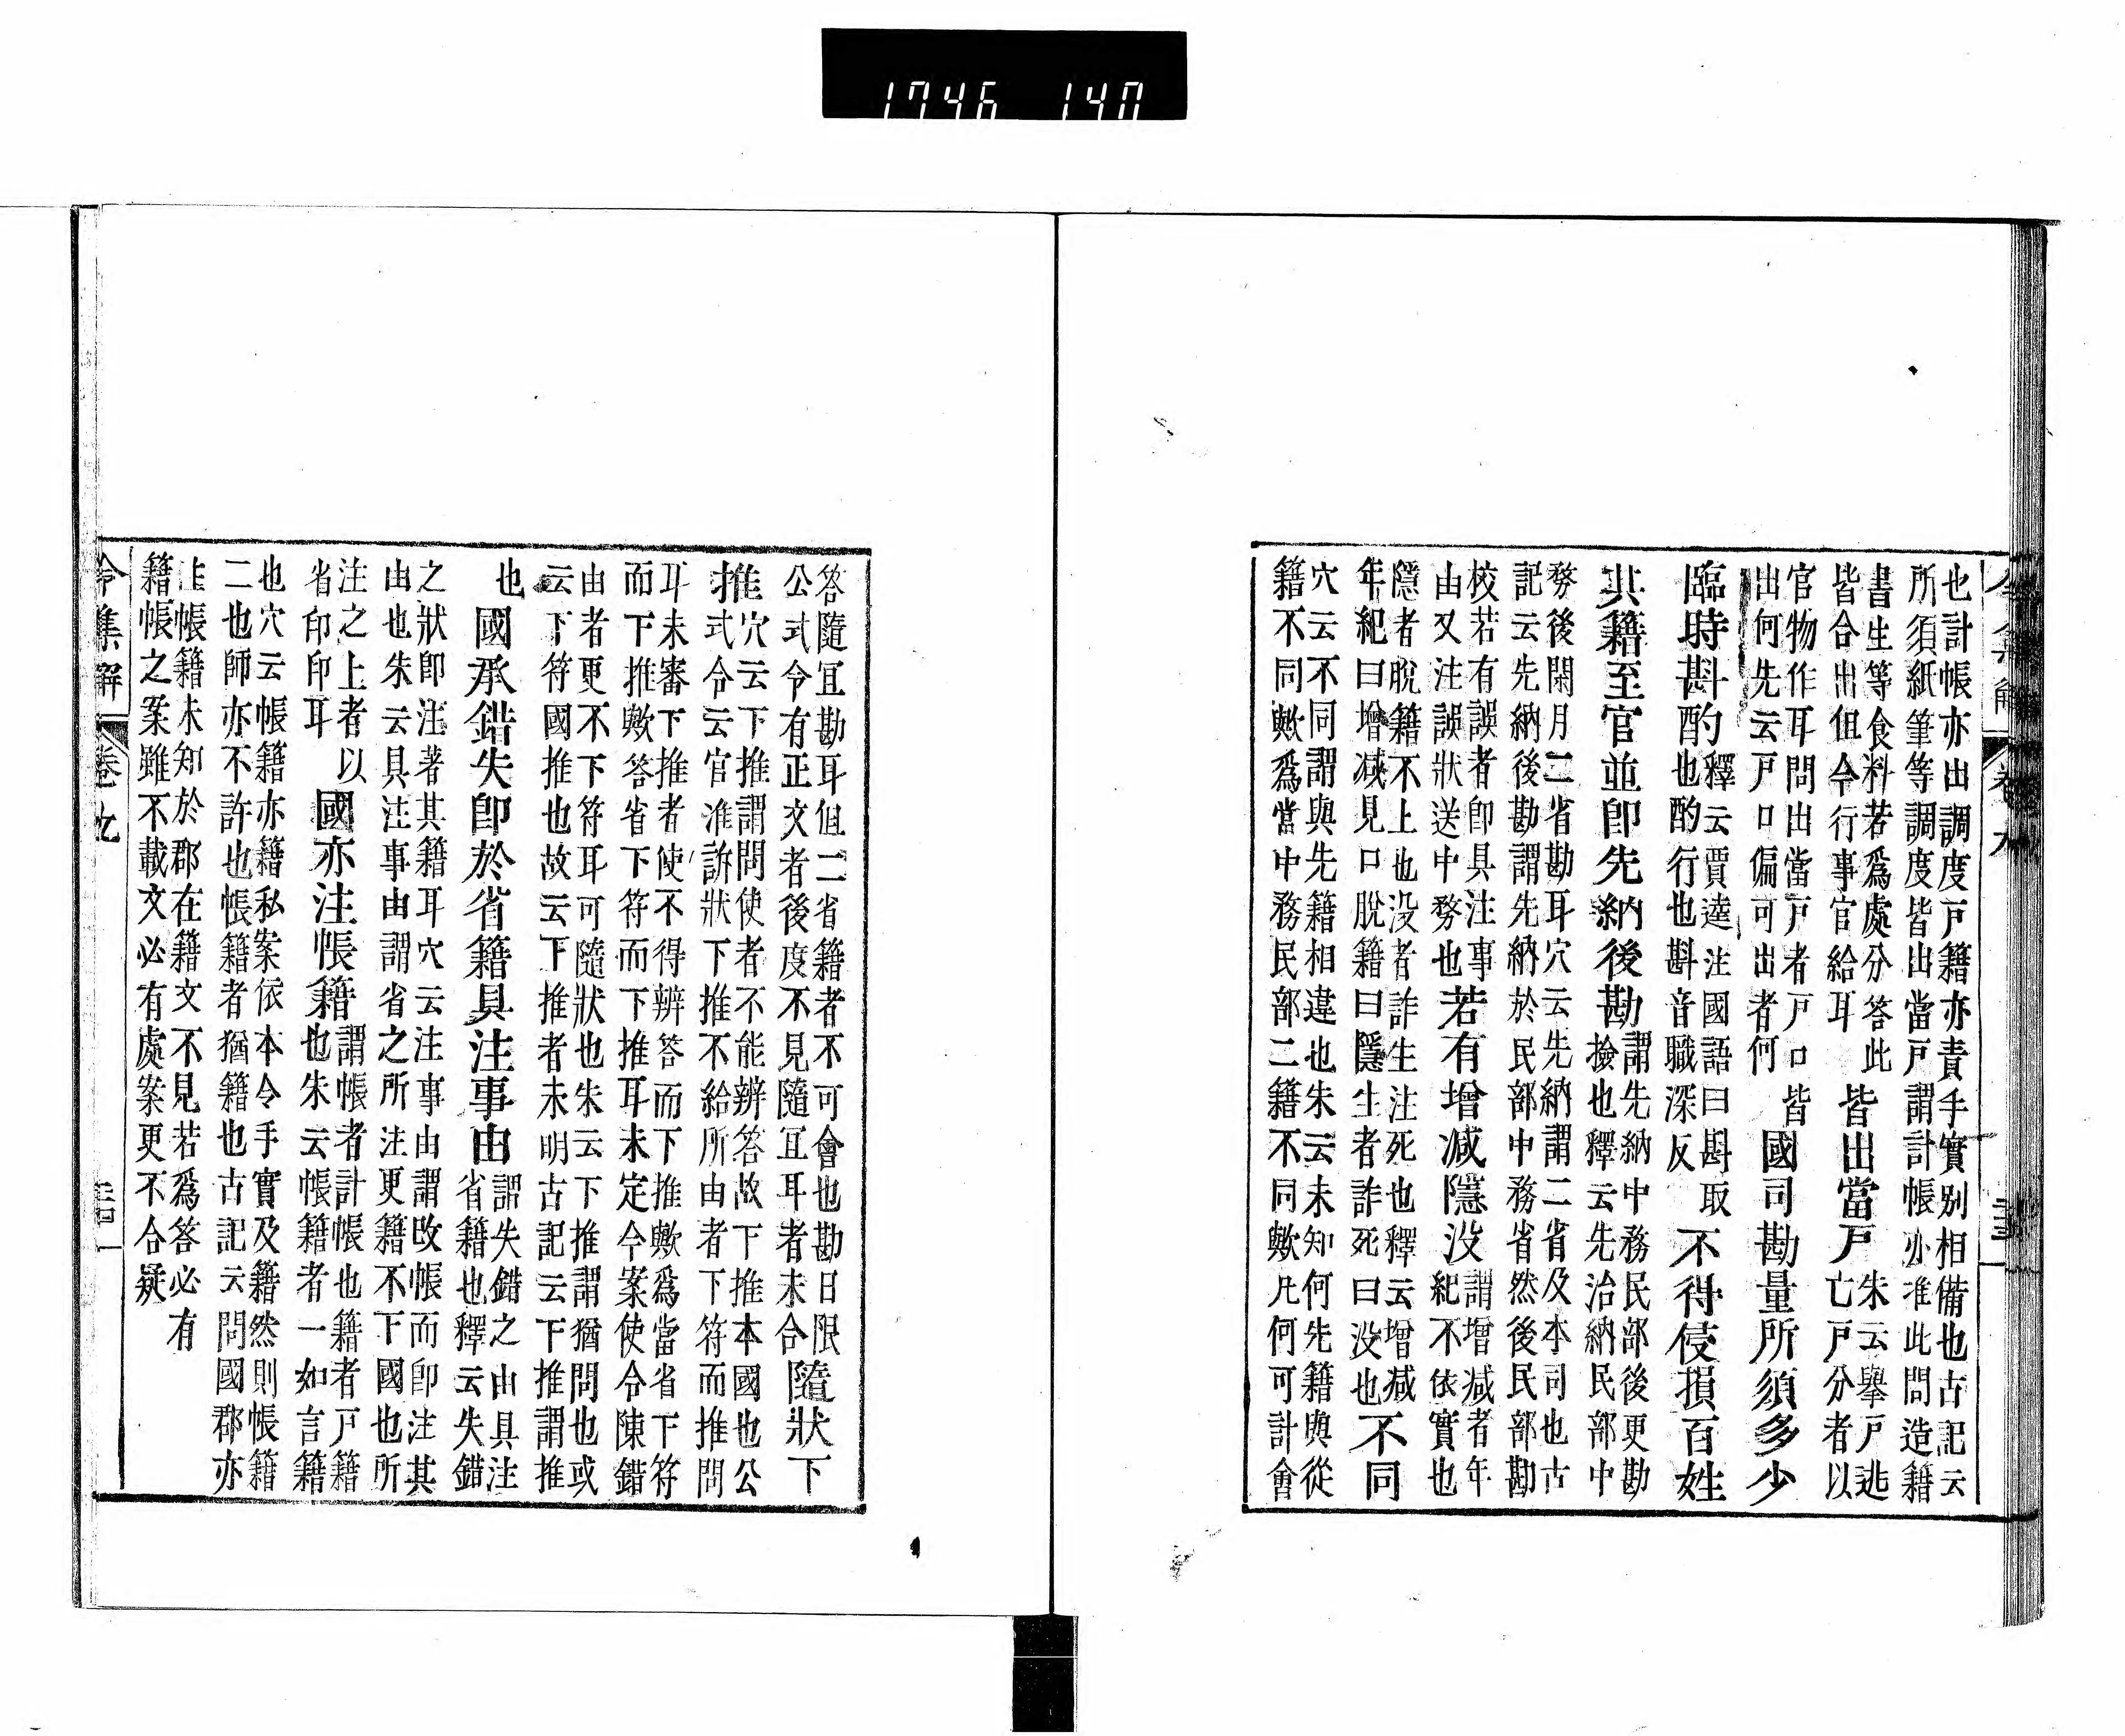 1746 140
也計帳亦出調度戸籍亦責手實別相備也古記云
所須紙筆等調度皆出當戸謂計帳亦准此問造籍
書生等食料若爲處分答此
皆合出但令行事官給耳
皆出當戸
朱云擧戸逃
亡戸分者以
官物作耳問出當戸者戸口皆
出何先云戸口偏可出者何
國司勘量所須多少
臨時斟酌
釋云賈逵注國語曰斟取
也酌行也斟音職深反
不得侵損百姓
其籍至官並即先納後勘
謂先納中務民部後更勘
撿也釋云先治納民部中
務後閑月二省勘耳穴云先納謂二省及本司也古
記云先納後勘謂先納於民部中務省然後民部勘
校若有誤者即具注事
由又注誤狀送中務也
若有增減隱没
謂增減者年
紀不依實也
隱者脱籍不上也没者詐生注死也釋云增減
年紀曰增減見口脱籍曰隱生者詐死曰没也
不同
穴云不同謂與先籍相違也朱云未知何先籍與從
籍不同歟爲當中務民部二籍不同歟凡何可計會
令集解 卷九
答隨冝勘耳但二省籍者不可會也勘日限
公式令有正文者後度不見隨冝耳者未合
隨狀下
推
穴云下推謂問使者不能辨答故下推本國也公
式令云官准訴狀下推不給所由者下符而推問
耳未審下推者使不得辨答而下推歟爲當省下符
而下推歟答省下符而下推耳未定今案使令陳錯
由者更不下符耳可隨狀也朱云下推謂猶問也或
云下符國推也故云下推者未明古記云下推謂推
也
國承錯失即於省籍具注事由
謂失錯之由具注
省籍也釋云失錯
之狀即注著其籍耳穴云注事由謂改帳而即注其
由也朱云具注事由謂省之所注更籍不下國也所
注之上者以
省印印耳
國亦注帳籍
謂帳者計帳也籍者戸籍
也朱云帳籍者一如言籍
也穴云帳籍亦籍私案依本令手實及籍然則帳籍
二也師亦不許也帳籍者猶籍也古記云問國郡亦
注帳籍未知於郡在籍文不見若爲答必有
籍帳之案雖不載文必有處案更不合疑
令集解 卷九